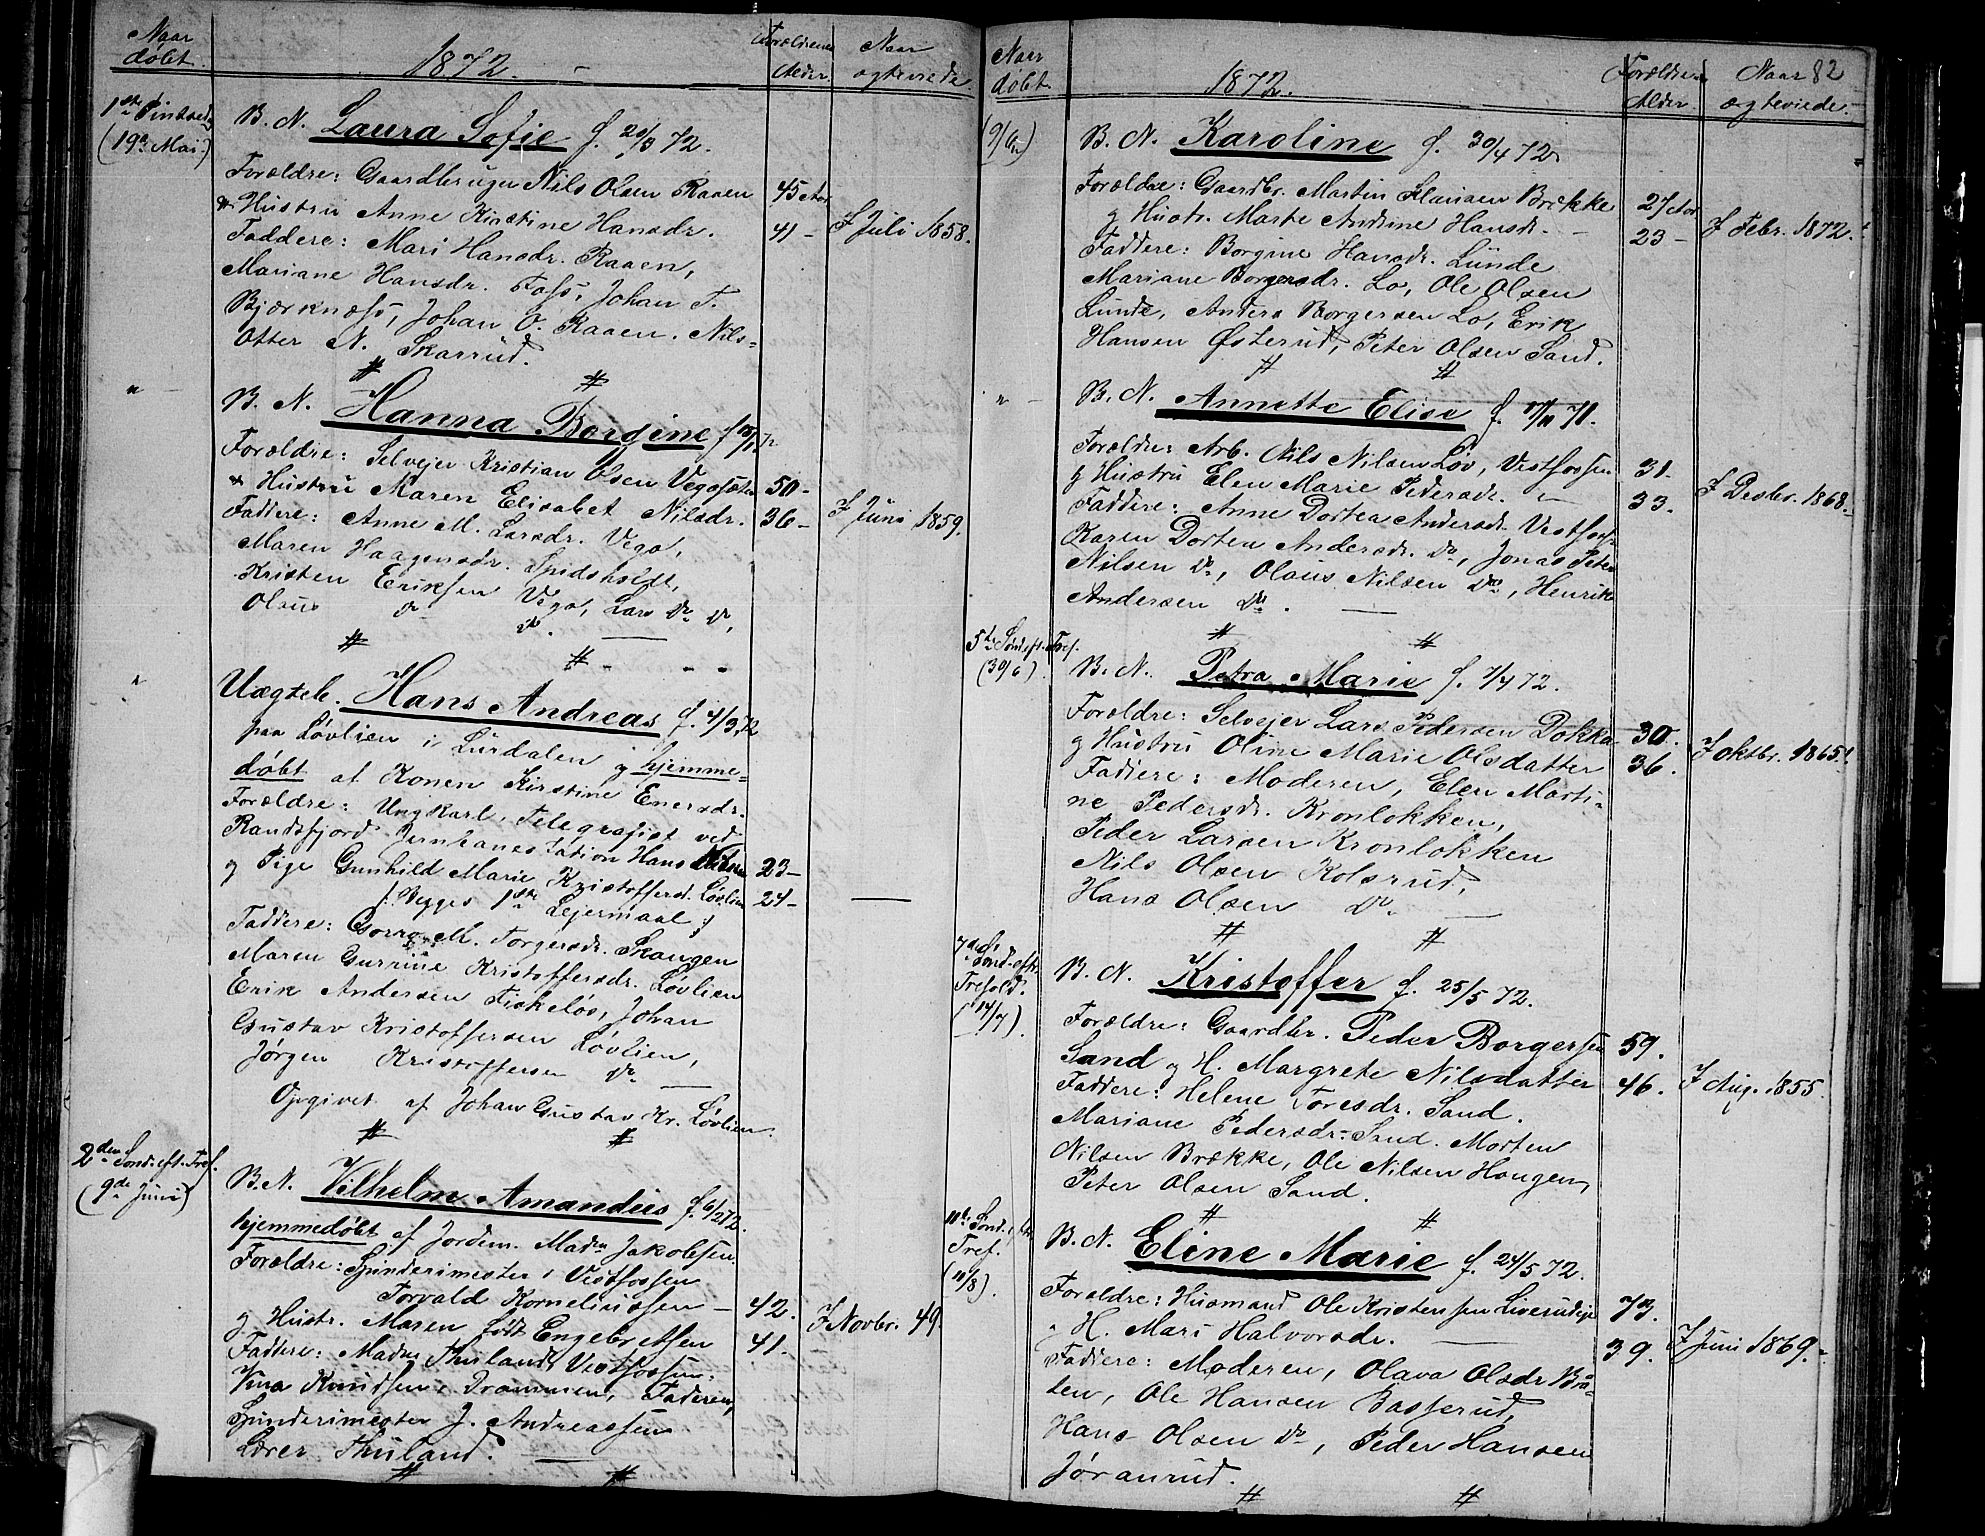 Naar
døbt.
1872.
Forældrenes
Alder.
Naar
ægteviede.
1ste Pintsed.
(19de Mai.)
B. N. Laura Sofie f. 20/3 72.
Forældre: Gaardbruger Nils Olsen Raaen 45 Aar
Hustru Anne Kirstine Hansdr. 41 - I Juli 1858.
Faddere: Mari Hansdr. Raaen,
Mariane Hansdr. Foss, Johan T.
Bjærknæss, Johan O. Raaen. Nils-
Otter N. Skarrud.
# #
" -
B. N. Hanna Borgine f.
Forældre: Selveier Kristian Olsen Vego 50-
Hustru Maren Elisabet Nilsdr. 36- I Juni 1859.
Faddere: Anne M. Larsdr. Vego,
Maren Haagensdr. Spidsholdt,
Kristen Eriksen Vego, Lars do do,
Olaus do do.
# #
"
Uægteb. Hans Andreas f. 4/3 72
paa Løvlien i Lurdalen og hjemme-
døbt af Konen Kirstine Enersdr.
Forældre: Ungkarl, Telegrafist ved
Randsfjord Jernbanestation Hans 23-
og Pige Gunhild Marie Kristoffersd. Løvlien 24-
/: Begges 1ste Lejermaal :/
Faddere: M. Torgersdr. Skaugen
Maren Gurrine Kristoffersdr. Løvlien
Erik Andersen Fiskeløs, Johan
Gustav Kristoffersen Løvlien,
Jørgen Kristoffersen do
Opgivet af Johan Gustav Kr. Løvlien.
# #
2den Sønd. eft. Tref.
(9de Juni)
B. N. Vilhelm Amandus f. 6/2 72.
hjemmedøbt af Jordem. Madm Jakobsen.
Forældre: Spinderimester i Vestfossen
Torvald Korneliussen - 42.
og Hustr. Maren født Engebretsen 41. I Novbr. 49.
Faddere: Madm Thuland, Vestfossen;
Knudsen, Drammen, Faderen,
Spinderimester J. Andreassen
Lærer Thuland.
# #
Naar
døbt.
1872.
Forældrenes
Alder.
Naar 82
ægteviede.
(9/6)
B. N. Karoline f. 30/4 72
Forældre: Gaardbr. Martin Hansen Brække 27 Aar
og Hustr. Marte Andrine Hansdr. - 23 - I Febr. 1872.
Faddere: Borgine Hansdr. Lunde
Mariane Borgersdr. Lo, Ole Olsen
Lunde, Anders Borgersen Lo, Erik
Hansen Østerud, Peter Olsen Sand.
# #
" -
B. N. Annette Elise f. 17/11 71.
Forældre: Arb. Nils Nilsen Lov, Vestfossen 31.
og Hustru Elen Marie Pedersdr. 33. I Desbr. 1868.
Faddere: Anne Dortea Andersdr. Vestfoss
Karen Dortea Andersdr. do, Jonas Peter
Nilsen do, Olaus Nilsen do, Henrik
Andersen do.
# #
5te Sønd. eft. Tref.
(30/6)
B. N. Petra Marie f. 7/4 72.
Forældre: Selvejer Lars Pedersen Dokka 30.
og Hustru Oline Marie Olsdatter 36. I Oktbr. 1865.
Faddere: Moderen, Elen Marti-
ne Pedersdr. Kronlokken,
Peder Larsen Kronlokken
Nils Olsen Kolsrud,
Hans Olsen do.
# #
7de Sønd. eft.
Trefold.
(14/7).
B. N. Kristoffer f. 25/5 72.
Forældre: Gaardbr. Peder Borgersen 59.
Sand og H. Margrete Nilsdatter 46. I Aug. 1855.
Faddere: Helene Toresdr. Sand.
Mariane Pedersdr. Sand. Morten
Nilsen Brække, Ole Nilsen Haugen,
Peter Olsen Sand.
# #
11te Sønd. eft.
Tref.
(11/8).
B. N. Eline Marie f. 24/5 72.
Forældre: Husmand Ole Kristensen Liverudeje 73.
og H. Mari Halvorsdr. 39. I Juni 1869.
Faddere: Moderen, Olava Olsdr. Brå-
ten, Ole Hansen Basserud,
Hans Olsen do, Peder Hansen
Jøranrud.
# #